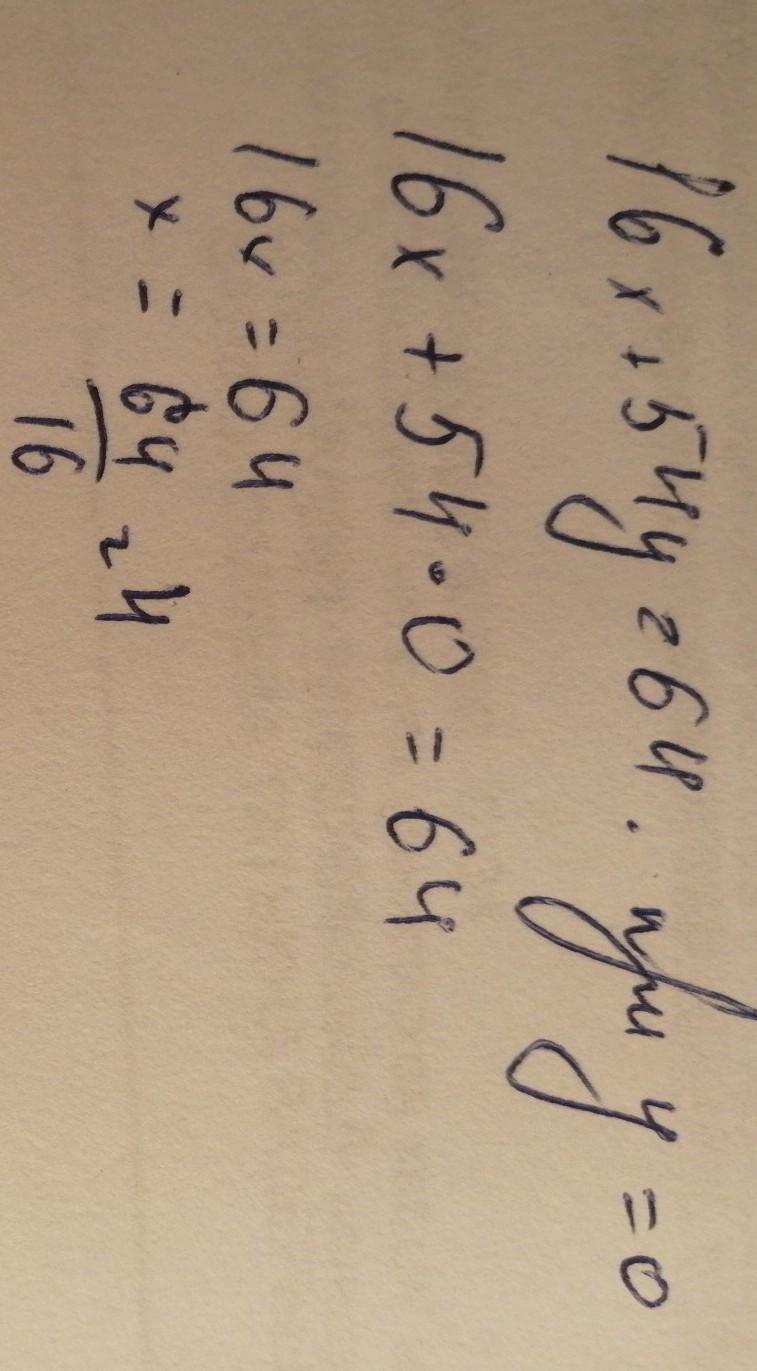 16x + 54y = 64. при y = 0
16x + 54 · 0 = 64
16x = 64
x = 64/16 = 4